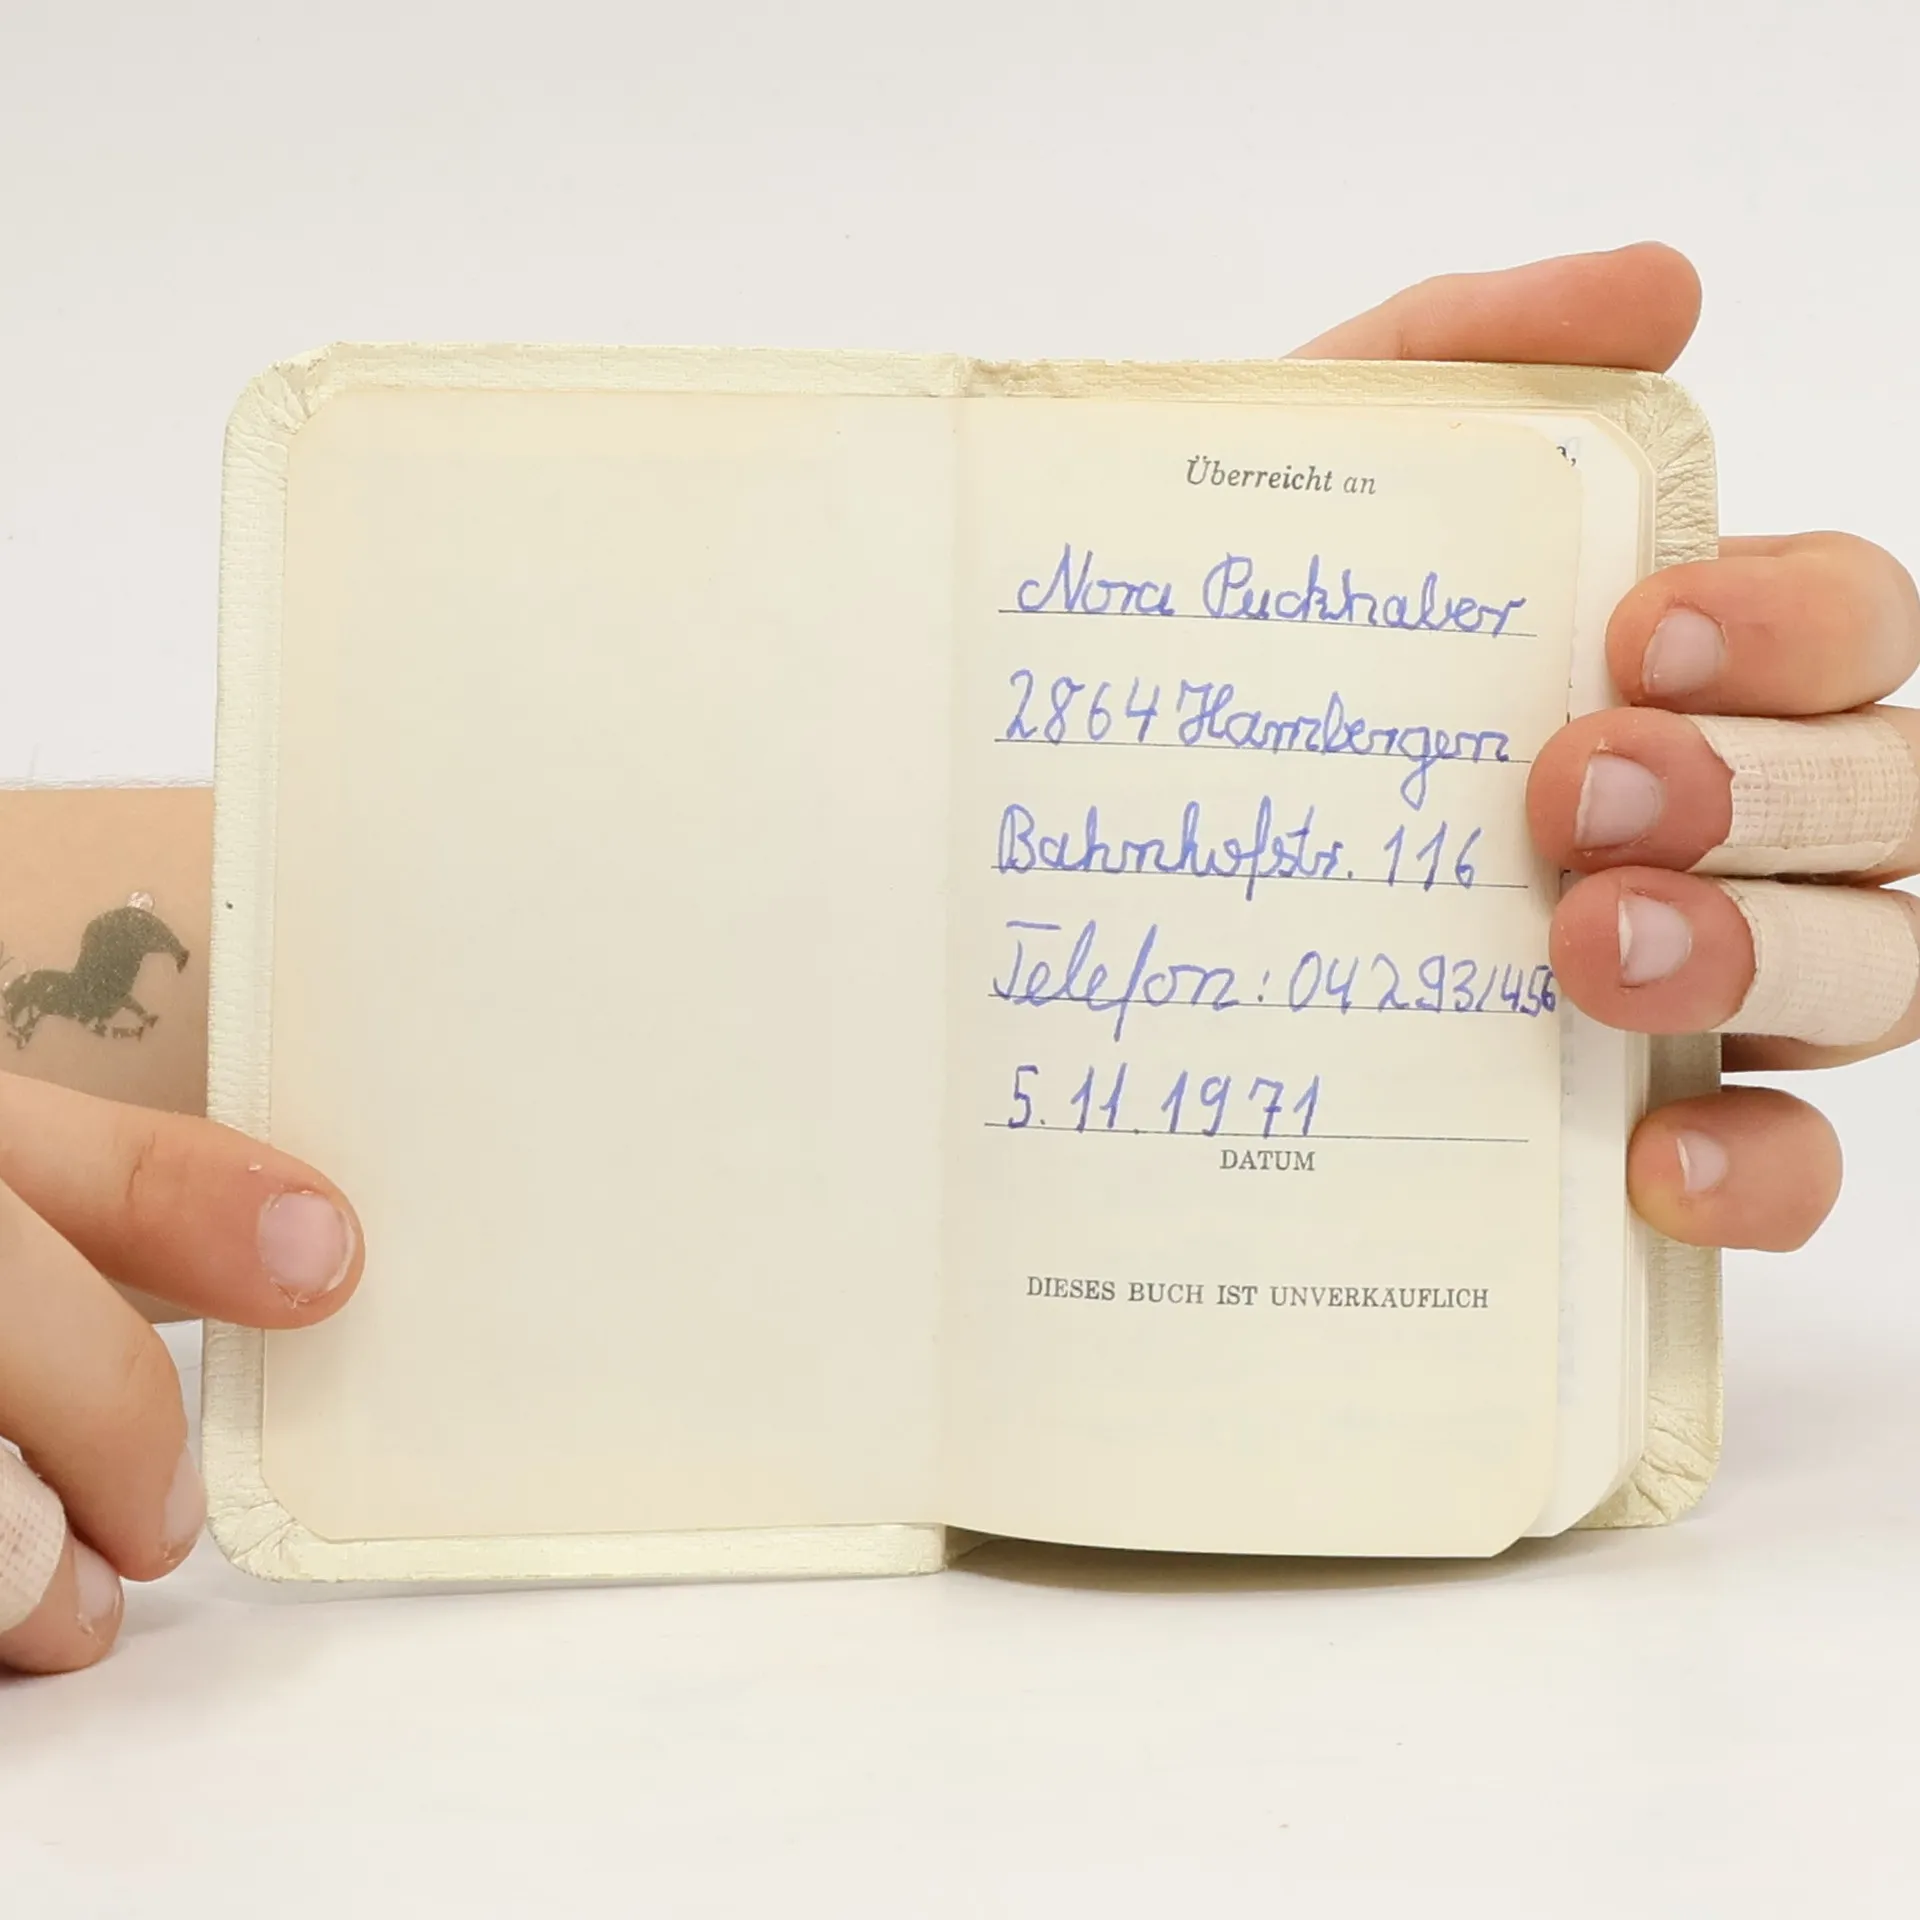 Überreicht an
Nora Puckhaber
2864 Hambergen
Bahnhofstr. 116
Telefon: 04293/456
5.11.1971
DATUM
DIESES BUCH IST UNVERKÄUFLICH